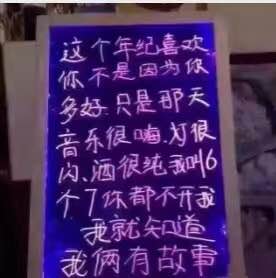 这个年纪喜欢
你不是因为你
多好.只是那天
音乐很嗨.灯很
闪.酒很纯我叫6
个7你都不开我
我就知道
我俩有故事